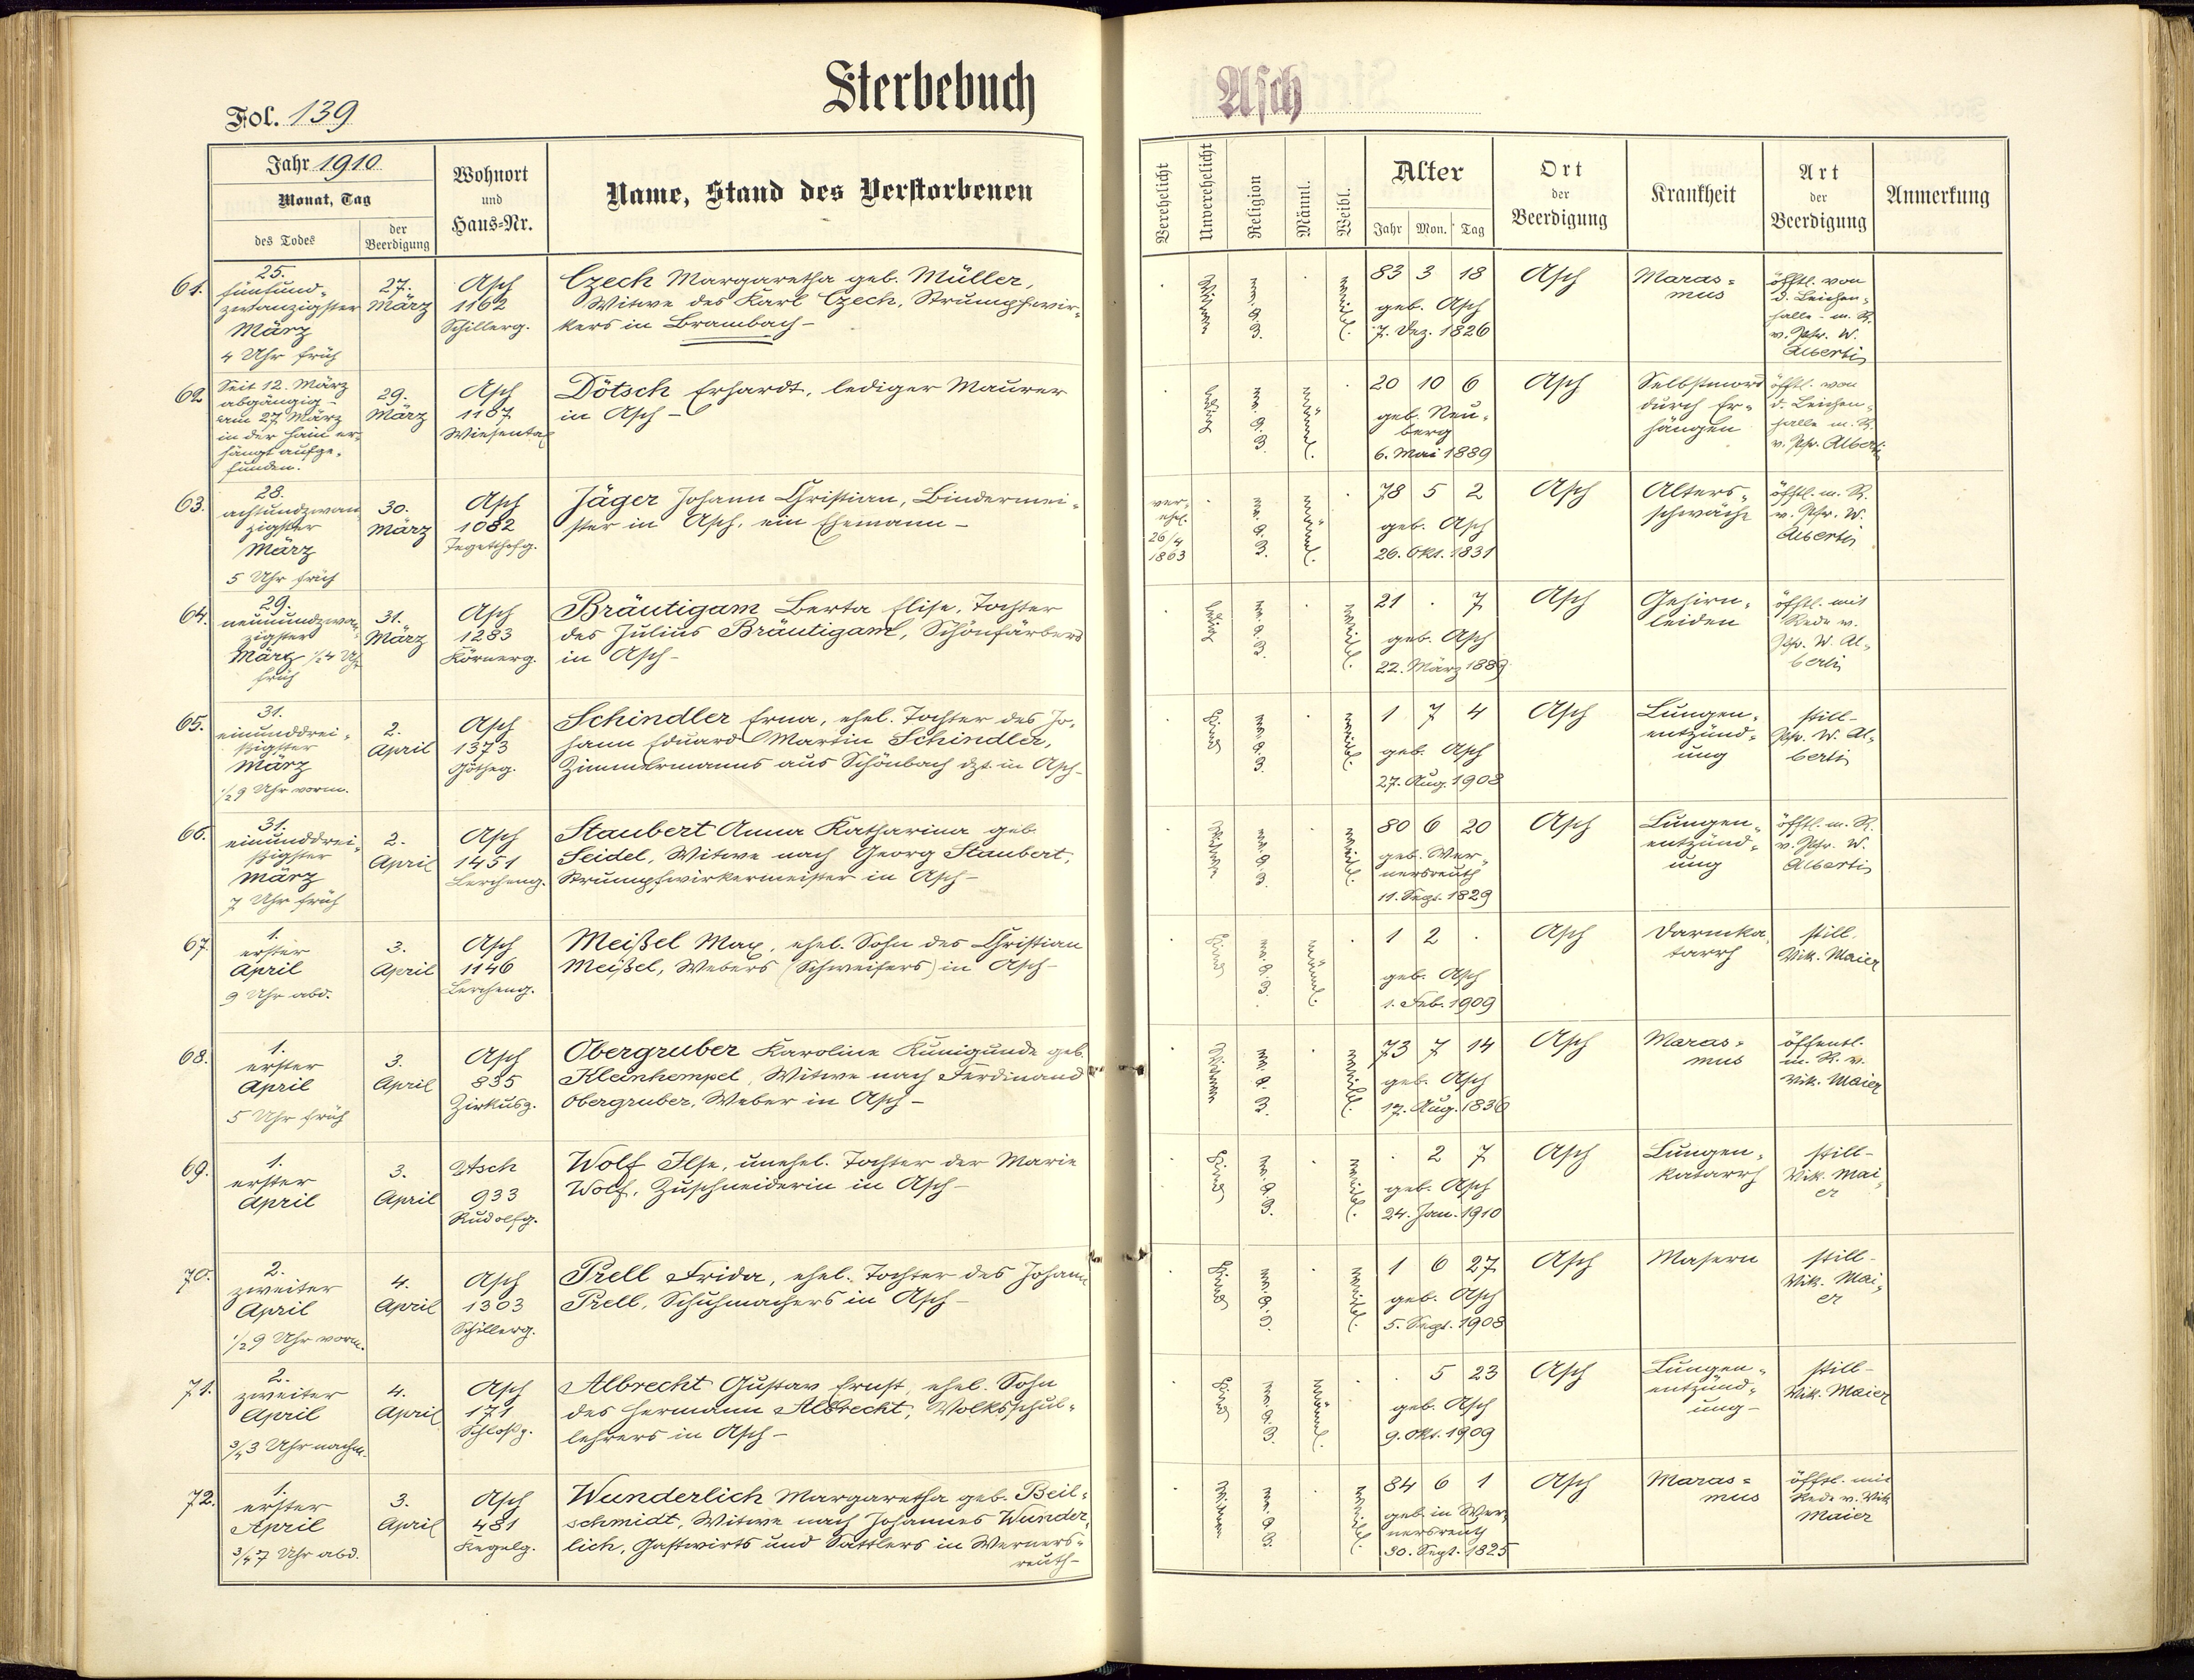 Sterbebuch
Asch
Fol. 139
Jahr 1910
Monat, Tag
des Todes
der Beerdigung
Wohnort
und
Haus-Nr.
Name, Stand des Verstorbenen
Verehelicht
Unverehelicht
Religion
Männl.
Weibl.
Alter
Jahr Mon. Tag
Ort
der
Beerdigung
Krankheit
Art
der
Beerdigung
Anmerkung
61.
25.
fünfund-
zwanzigster
März
4 Uhr früh
27.
März
Asch
1162
Schillerg.
Czech Margaretha geb. Müller,
Witwe des Karl Czech, Strumpfwir-
kers in Brambach-
Witwe
ev. A. B.
weibl.
83 3 18
geb. Asch
7. Dez. 1826
Asch
Maras=
mus
öfftl. von
d. Leichen-
halle - m. R.
v. Pfr. W.
Alberti
62
Seit 12. März
abgängig -
am 27 März
in der Hain er-
hängt aufge-
funden.
29.
März
Asch
1187
Wiesental
Dötsch Erhardt, lediger Maurer
in Asch-
ledig
ev. A. B.
männl.
20 10 6
geb. Neu-
berg
6. Mai 1889
Asch
Selbstmord
durch Er-
hängen
öfftl. von
d. Leichen-
halle m. R.
v. Pfr. Alberti
63.
28.
achtundzwan
zigster
März
5 Uhr früh
30.
März
Asch
1082
Tegetthofg.
Jäger Johann Christian, Bindermei-
ster in Asch, ein Ehemann -
ver-
ehel.
26/4
1863
ev. A. B.
männl.
78 5 2
geb. Asch
26. Okt. 1831
Asch
Alters-
schwäche
öfftl. m. R.
v. Pfr. W.
Alberti
64.
29.
neunundzwan-
zigster
März 1/2 4 Uhr
früh
31.
März
Asch
1283
Körnerg.
Bräutigam Berta Elise, Tochter
des Julius Bräutigam, Schönfärbers
in Asch-
ledig
ev. A. B.
weibl.
21 . 7
geb. Asch
22. März 1889
Asch
Gehirn-
leiden
öfftl. mit
Rede v.
Pfr. W. Al-
berti
65.
31.
einunddrei-
ßigster
März
1/2 9 Uhr vorm.
2.
April
Asch
1373
Götheg.
Schindler Erna, ehel. Tochter des Jo-
hann Eduard Martin Schindler,
Zimmermanns aus Schönbach dzt. in Asch-
Kind
ev. A. B.
weibl.
1 7 4
geb. Asch
27. Aug. 1908
Asch
Lungen-
entzünd-
ung
still-
Pfr. W. Al-
berti
66.
31.
einunddrei-
ßigster
März
7 Uhr früh
2.
April
Asch
1451
Lercheng.
Staubert Anna Katharina geb.
Seidel, Witwe nach Georg Staubert,
Strumpfwirkermeister in Asch-
Witwe
ev. A. B.
weibl.
80 6 20
geb. Wer-
nersreuth
11. Sept. 1829
Asch
Lungen-
entzünd-
ung
öfftl. m. R.
v. Pfr. W.
Alberti
67.
1.
erster
April
9 Uhr abd.
3.
April
Asch
1146
Lercheng.
Meißel Max, ehel. Sohn des Christian
Meißel, Webers (Schweifers) in Asch-
Kind
ev. A. B.
männl.
1 2 .
geb. Asch
1. Feb. 1909
Asch
Darmka-
tarrh
still.
Vik. Maier
68.
1.
erster
April
5 Uhr früh
3.
April
Asch
835
Zirkusg.
Obergruber Karoline Kunigunde geb.
Kleinhempel, Witwe nach Ferdinand
Obergruber, Weber in Asch-
Witwe
ev. A. B.
weibl.
73 7 14
geb. Asch
17. Aug. 1836
Asch
Maras-
mus
öffentl.
m. R. v.
Vik. Maier
69.
1.
erster
April
3.
April
Asch
933
Rudolfg.
Wolf Ilse, unehel. Tochter der Marie
Wolf, Zuschneiderin in Asch-
Kind
ev. A. B.
weibl.
. 2 7
geb. Asch
24. Jan. 1910
Asch
Lungen-
katarrh
still-
Vik. Mai-
er
70.
2.
zweiter
April
1/2 9 Uhr vorm.
4.
April
Asch
1303
Schillerg.
Prell Frida, ehel. Tochter des Johann
Prell, Schuhmachers in Asch-
Kind
ev. A. B.
weibl.
1 6 27
geb. Asch
5. Sept. 1908
Asch
Masern
still-
Vik. Mai-
er
71.
2.
zweiter
April
3/4 3 Uhr nachm.
4.
April
Asch
171
Schloßg.
Albrecht Gustav Ernst, ehel. Sohn
des Hermann Albrecht, Volksschul-
lehrers in Asch-
Kind
ev. A. B.
männl.
. 5 23
geb. Asch
9. Okt. 1909
Asch
Lungen-
entzünd-
ung-
still-
Vik. Maier
72.
1.
erster
April
3/4 7 Uhr abd.
3.
April
Asch
481
Kegelg.
Wunderlich Margaretha geb. Beil-
schmidt, Witwe nach Johannes Wunder-
lich, Gastwirts und Sattlers in Werners-
reuth-
Witwe
ev. A. B.
weibl.
84 6 1
geb. in Wer-
nersreuth
30. Sept. 1825
Asch
Maras=
mus
öfftl. mit
Rede v. Vik
Maier